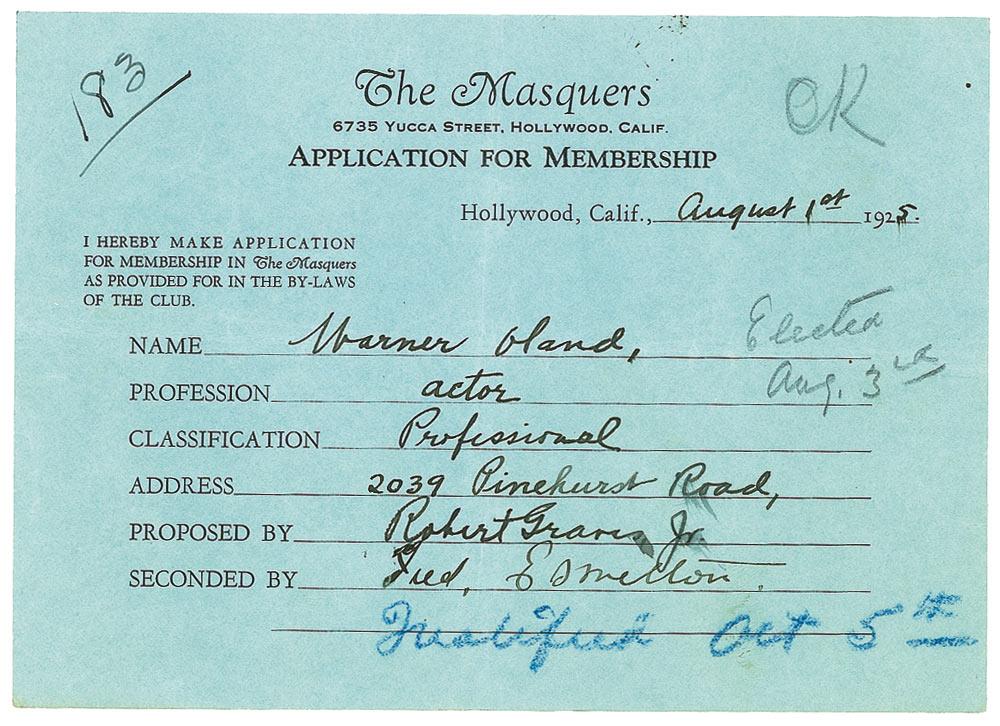 183
OK
The Masquers
6735 Yucca Street, Hollywood, Calif.
Application for Membership
Hollywood, Calif., August 1st 1925.
I HEREBY MAKE APPLICATION
FOR MEMBERSHIP IN The Masquers
AS PROVIDED FOR IN THE BY-LAWS
OF THE CLUB.
NAME Warner Oland,
Elected
Aug. 3rd
PROFESSION actor
CLASSIFICATION Professional
ADDRESS 2039 Pinehurst Road,
PROPOSED BY Robert Graves Jr.
SECONDED BY Fred, E
Qualified Oct 5th